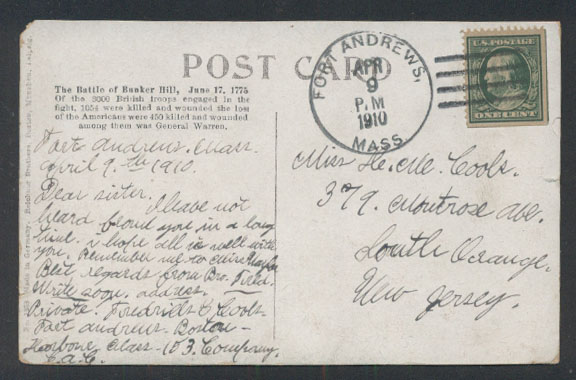 POST CARD
The Battle of Bunker Hill, June 17, 1775
Of the 3000 British troops engaged in the
fight, 1054 were killed and wounded the loss
of the Americans were 450 killed and wounded
among them was General Warren.
FORT ANDREWS,
APR
9
P.M
1910
MASS.
U.S. POSTAGE
ONE CENT
Fort Andrews. Mass.
April 9.th 1910.
Dear sister.
I have not
heard from you in a long
time. i hope all is well with
you. Remember me to
Best regards from Bro. Fred.
Write soon. address.
Private. Fredrick Cools.
Fort Andrews. Boston-
Harbour Mass- 153. Company.
C.A.C.
Miss He. Me. Cools.
379. Montrose Ave.
South Orange.
New Jersey.